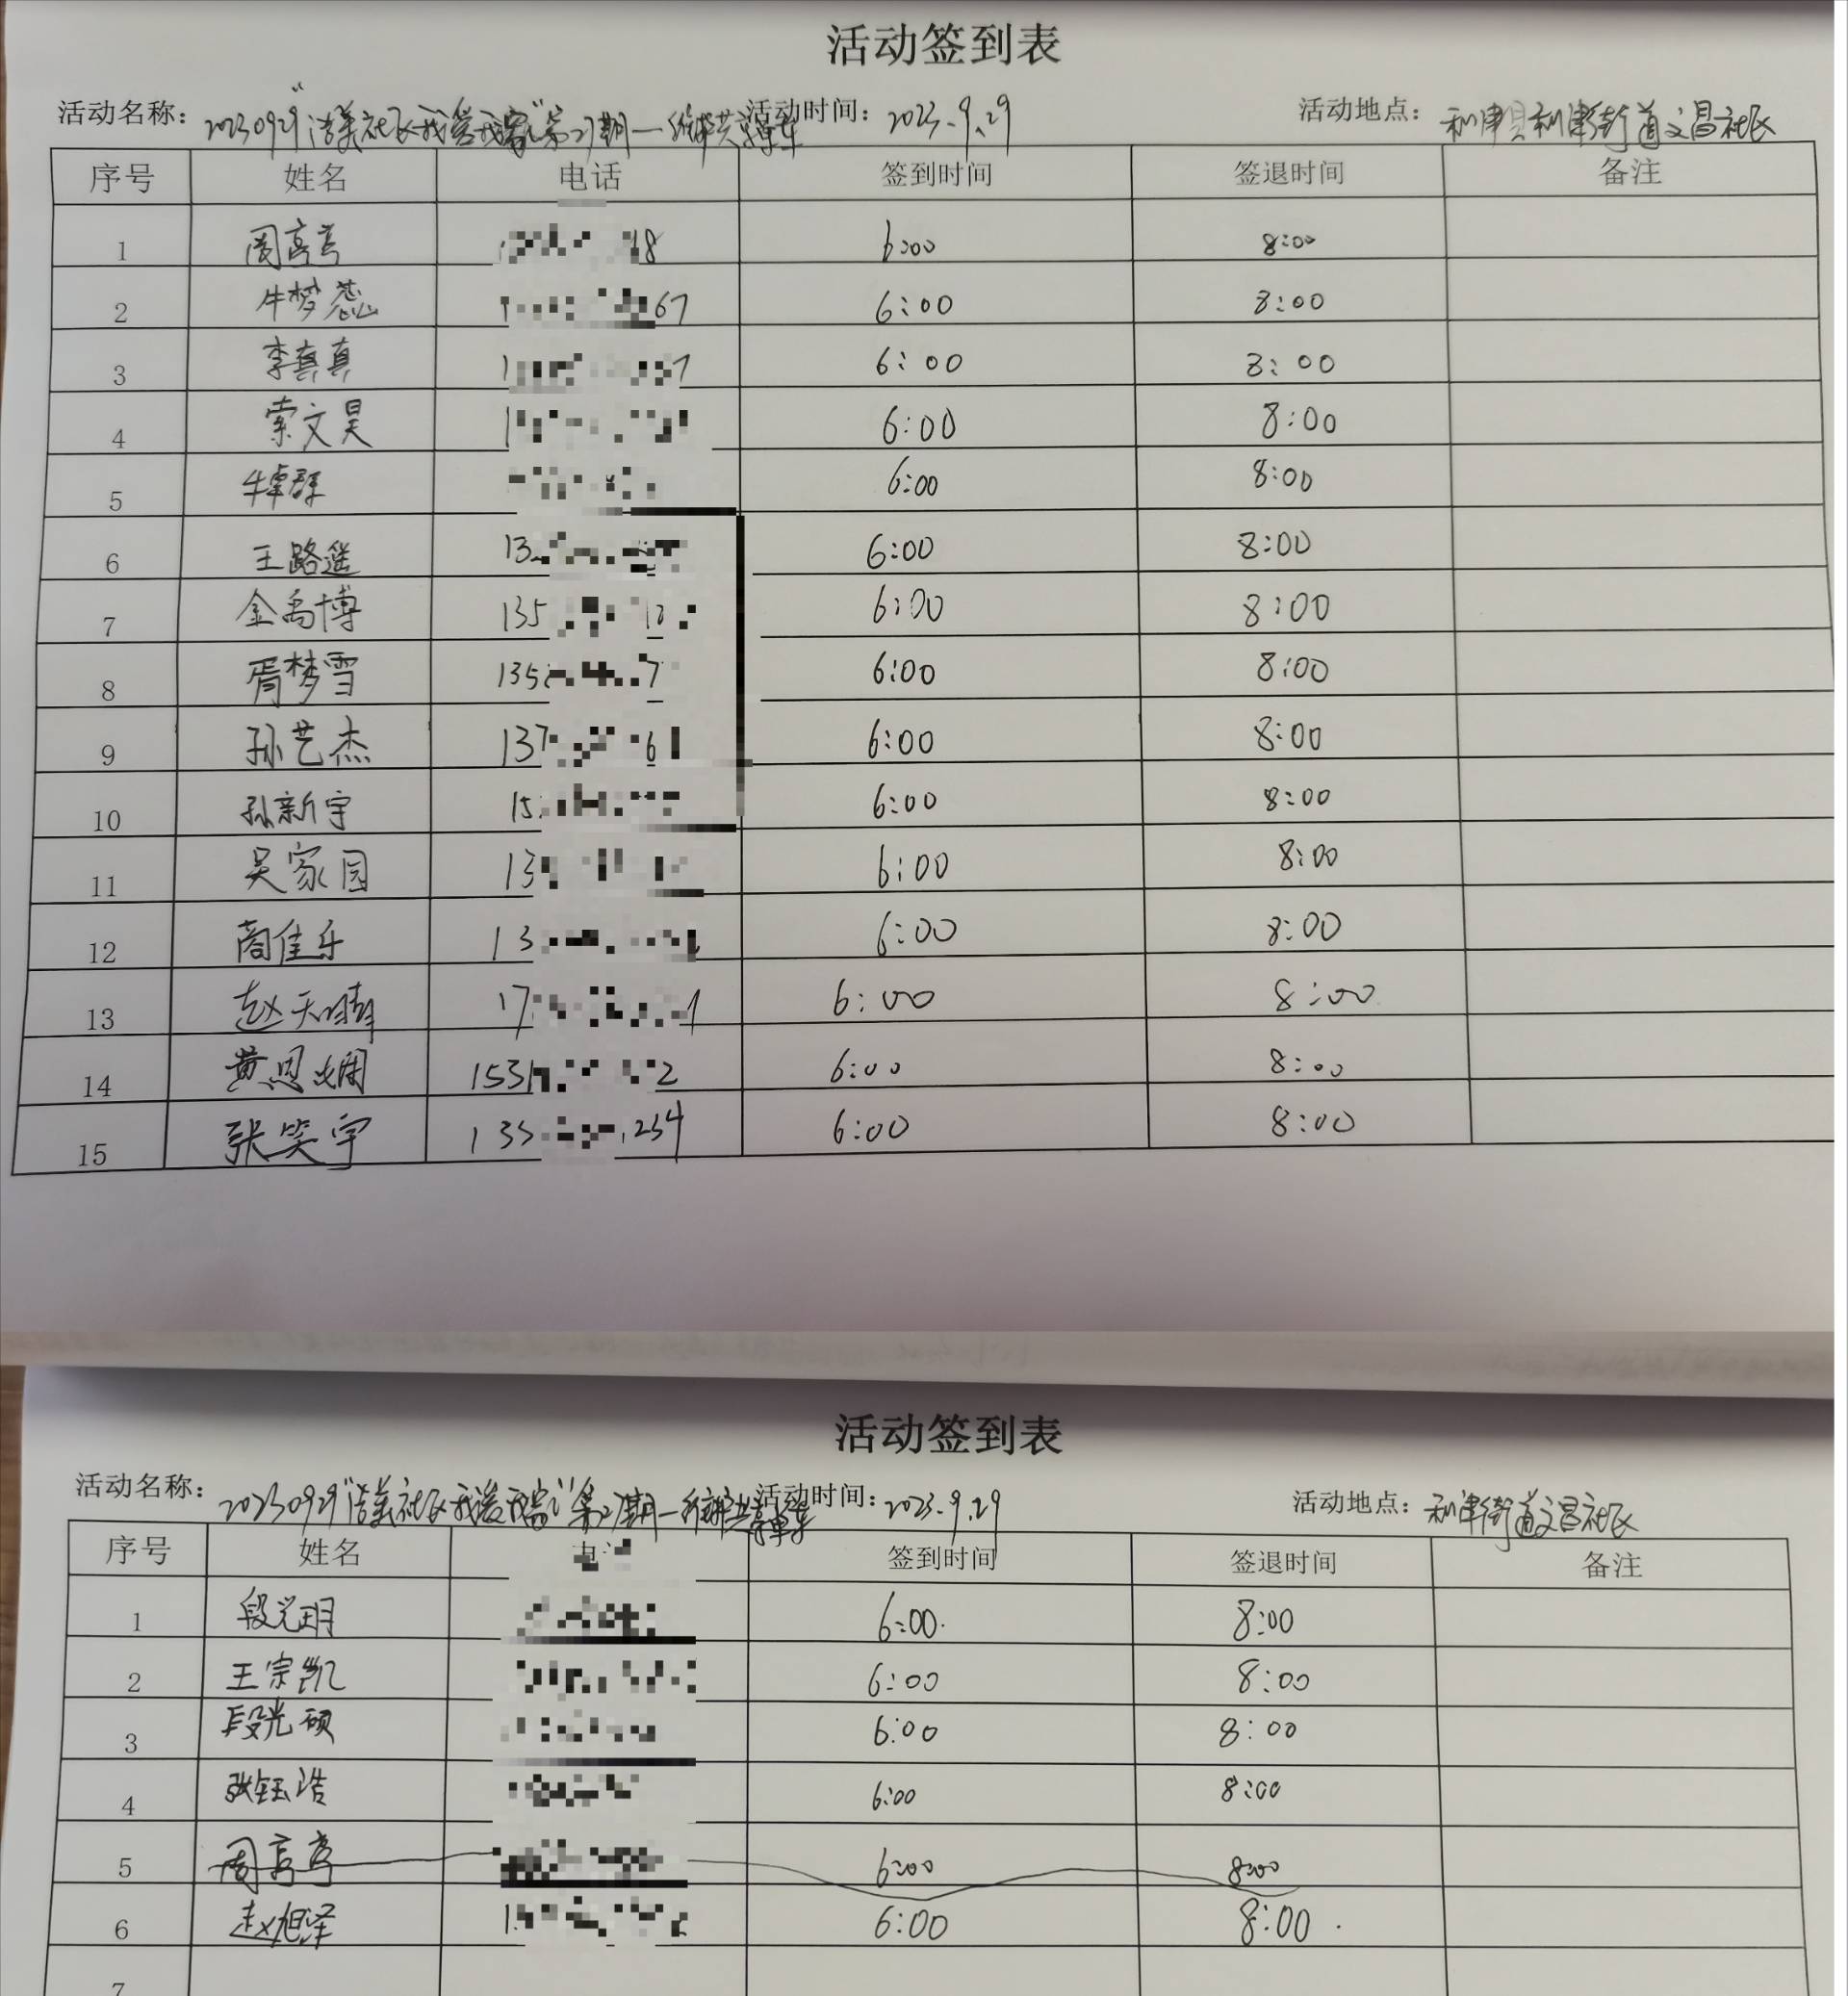 活动签到表
活动名称：20230929"洁美社区我爱我家"第27期—维护共享单车 活动时间：2023.9.29 活动地点：利津县利津街道文昌社区
序号 姓名 电话 签到时间 签退时间 备注
1 周亭亭 18 6:00 8:00
2 牛梦蕊 67 6:00 8:00
3 李真真 1 7 6:00 8:00
4 索文昊 1 6:00 8:00
5 牛卓群 6:00 8:00
6 王路遥 13 6:00 8:00
7 金禹博 135 6:00 8:00
8 胥梦雪 135 7 6:00 8:00
9 孙艺杰 137 6 6:00 8:00
10 孙新宇 15 6:00 8:00
11 吴家园 13 6:00 8:00
12 商佳乐 13 6:00 8:00
13 赵天晴 17 1 6:00 8:00
14 黄思娴 1531 2 6:00 8:00
15 张笑宇 135 254 6:00 8:00
活动签到表
活动名称：20230929"洁美社区我爱我家"第27期—维护共享单车 活动时间：2023.9.29 活动地点：利津街道文昌社区
序号 姓名 签到时间 签退时间 备注
1 段光玥 6:00 8:00
2 王宗凯 6:00 8:00
3 段光硕 6:00 8:00
4 张钰浩 6:00 8:00
5 周亭亭 6:00 8:00
6 赵旭泽 1 6:00 8:00
7